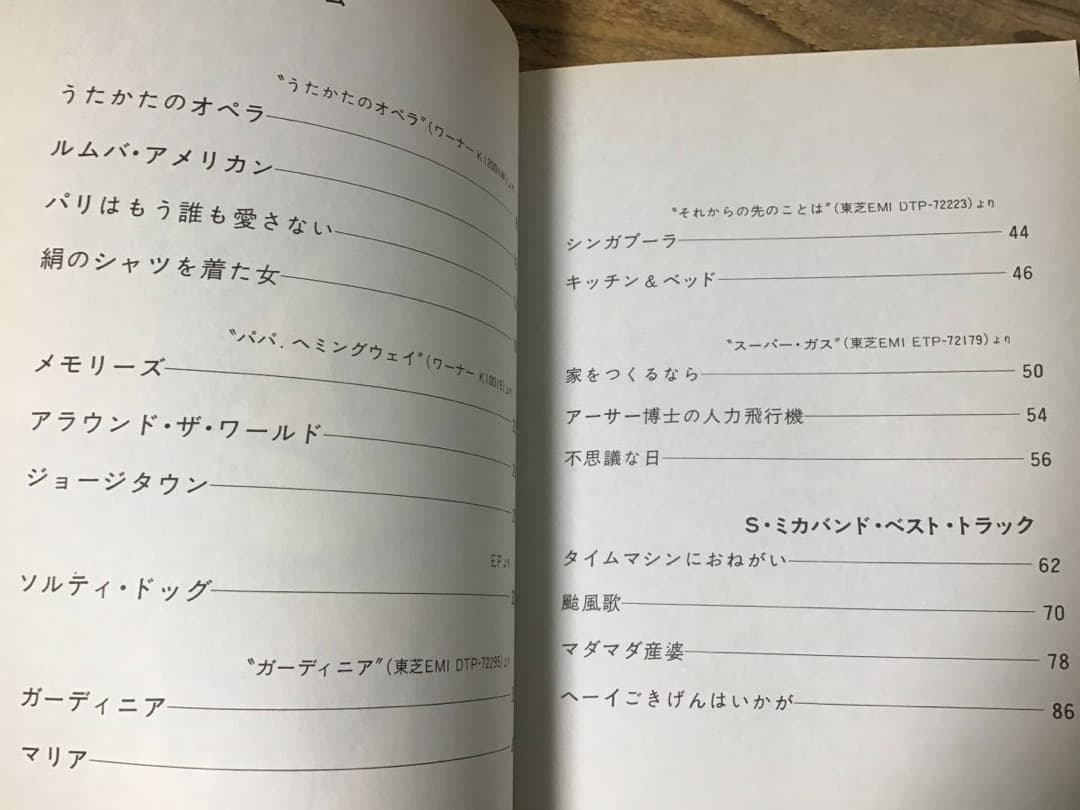 ム
“うたかたのオペラ”(ワーナー K12001W)より
うたかたのオペラ
ルムバ・アメリカン
パリはもう誰も愛さない
絹のシャツを着た女
“パパ.ヘミングウェイ”(ワーナー K10019)より
メモリーズ
アラウンド・ザ・ワールド
ジョージタウン
EPより
ソルティ・ドッグ
“ガーディニア”(東芝EMI DTP-72295)より
ガーディニア
マリア
“それからの先のことは”(東芝EMI DTP-72223)より
シンガプーラ 44
キッチン&ベッド 46
“スーパー・ガス”(東芝EMI ETP-72179)より
家をつくるなら 50
アーサー博士の人力飛行機 54
不思議な日 56
S・ミカバンド・ベスト・トラック
タイムマシンにおねがい 62
颱風歌 70
マダマダ産婆 78
ヘーイごきげんはいかが 86